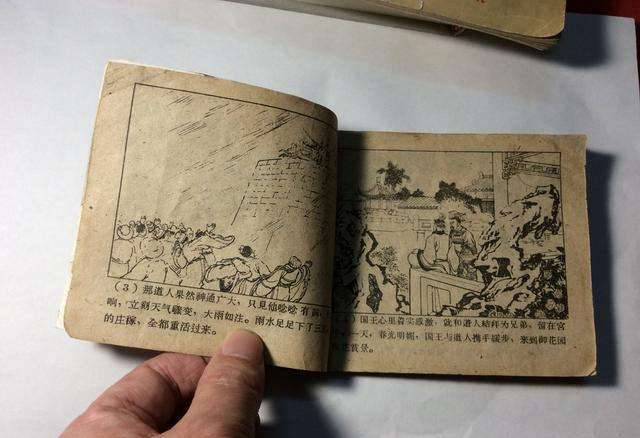 (3) 那道人果然神通广大，只见他唸唸有
响，立刻天气骤变，大雨如注。雨水足足下了三
的庄稼，全都重活过来。
国王心里着实感激，就和道人结拜为兄弟，留在宫
一天，春光明媚，国王与道人携手缓步，来到御花园
赏景。